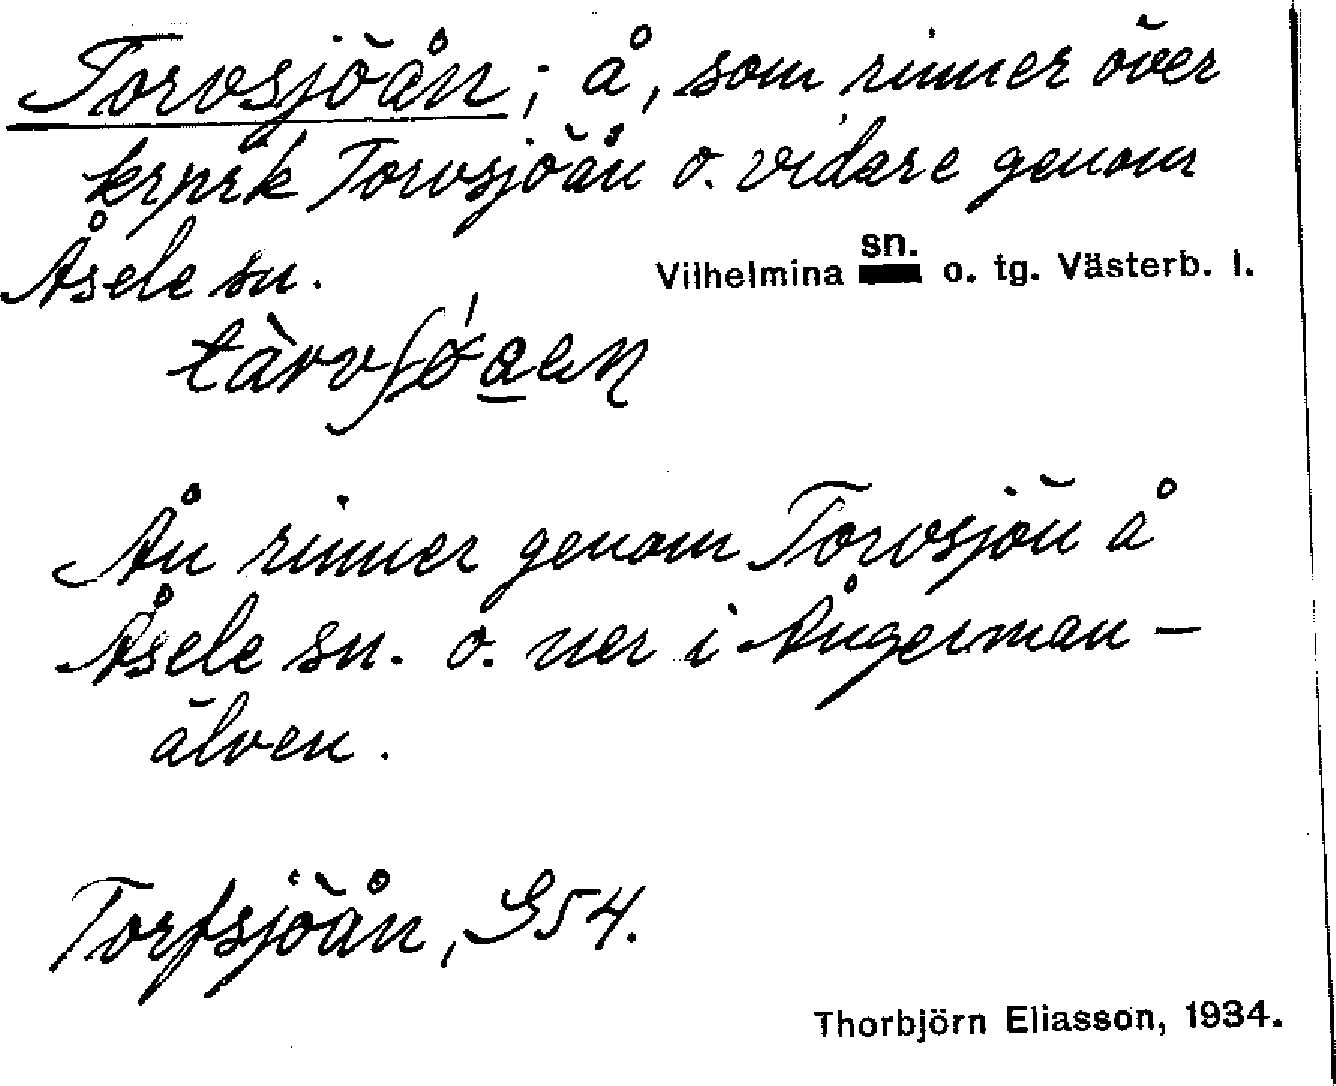 Torvsjöån; å, som rinner över
krprk Torvsjöån o. vidare genom
Åsele sn.
Vilhelmina sn. o. tg. Västerb. l.
Ån rinner genom Torvsjön å
Åsele sn. o. ner i Ångerman-
älven.
Torfsjöån, S54.
Thorbjörn Eliasson, 1934.